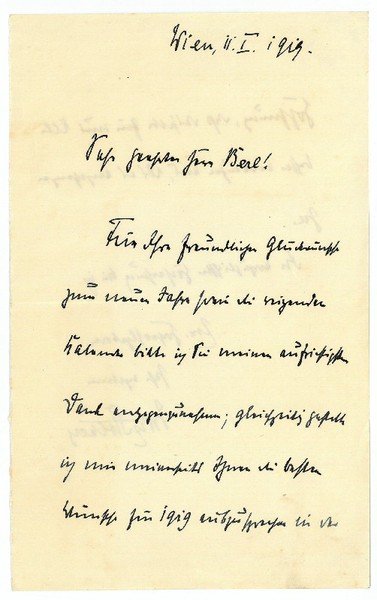 Wien, 11.I. 1919.
Sehr geehrter Herr Berl!
Für Ihre freundlichen Glückwünsche
zum neuen Jahre sowie die reizenden
Kalender bitte ich Sie meinen aufrichtigsten
Dank entgegenzunehmen; gleichzeitig gestatte
ich mir meinerseits Ihnen die besten
Wünsche für 1919 auszusprechen in der